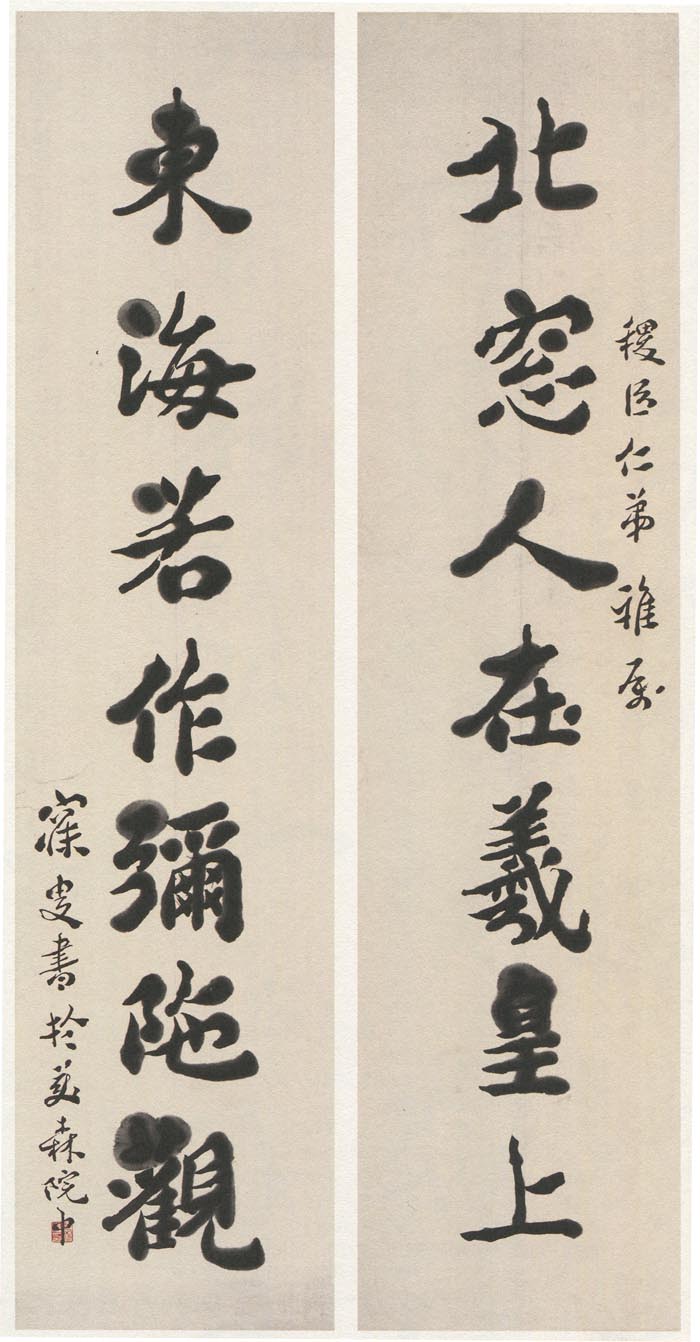 稷臣仁弟 雅属
北窓人在羲皇上
東海若作彌陁觀
寐叟書於美森院中